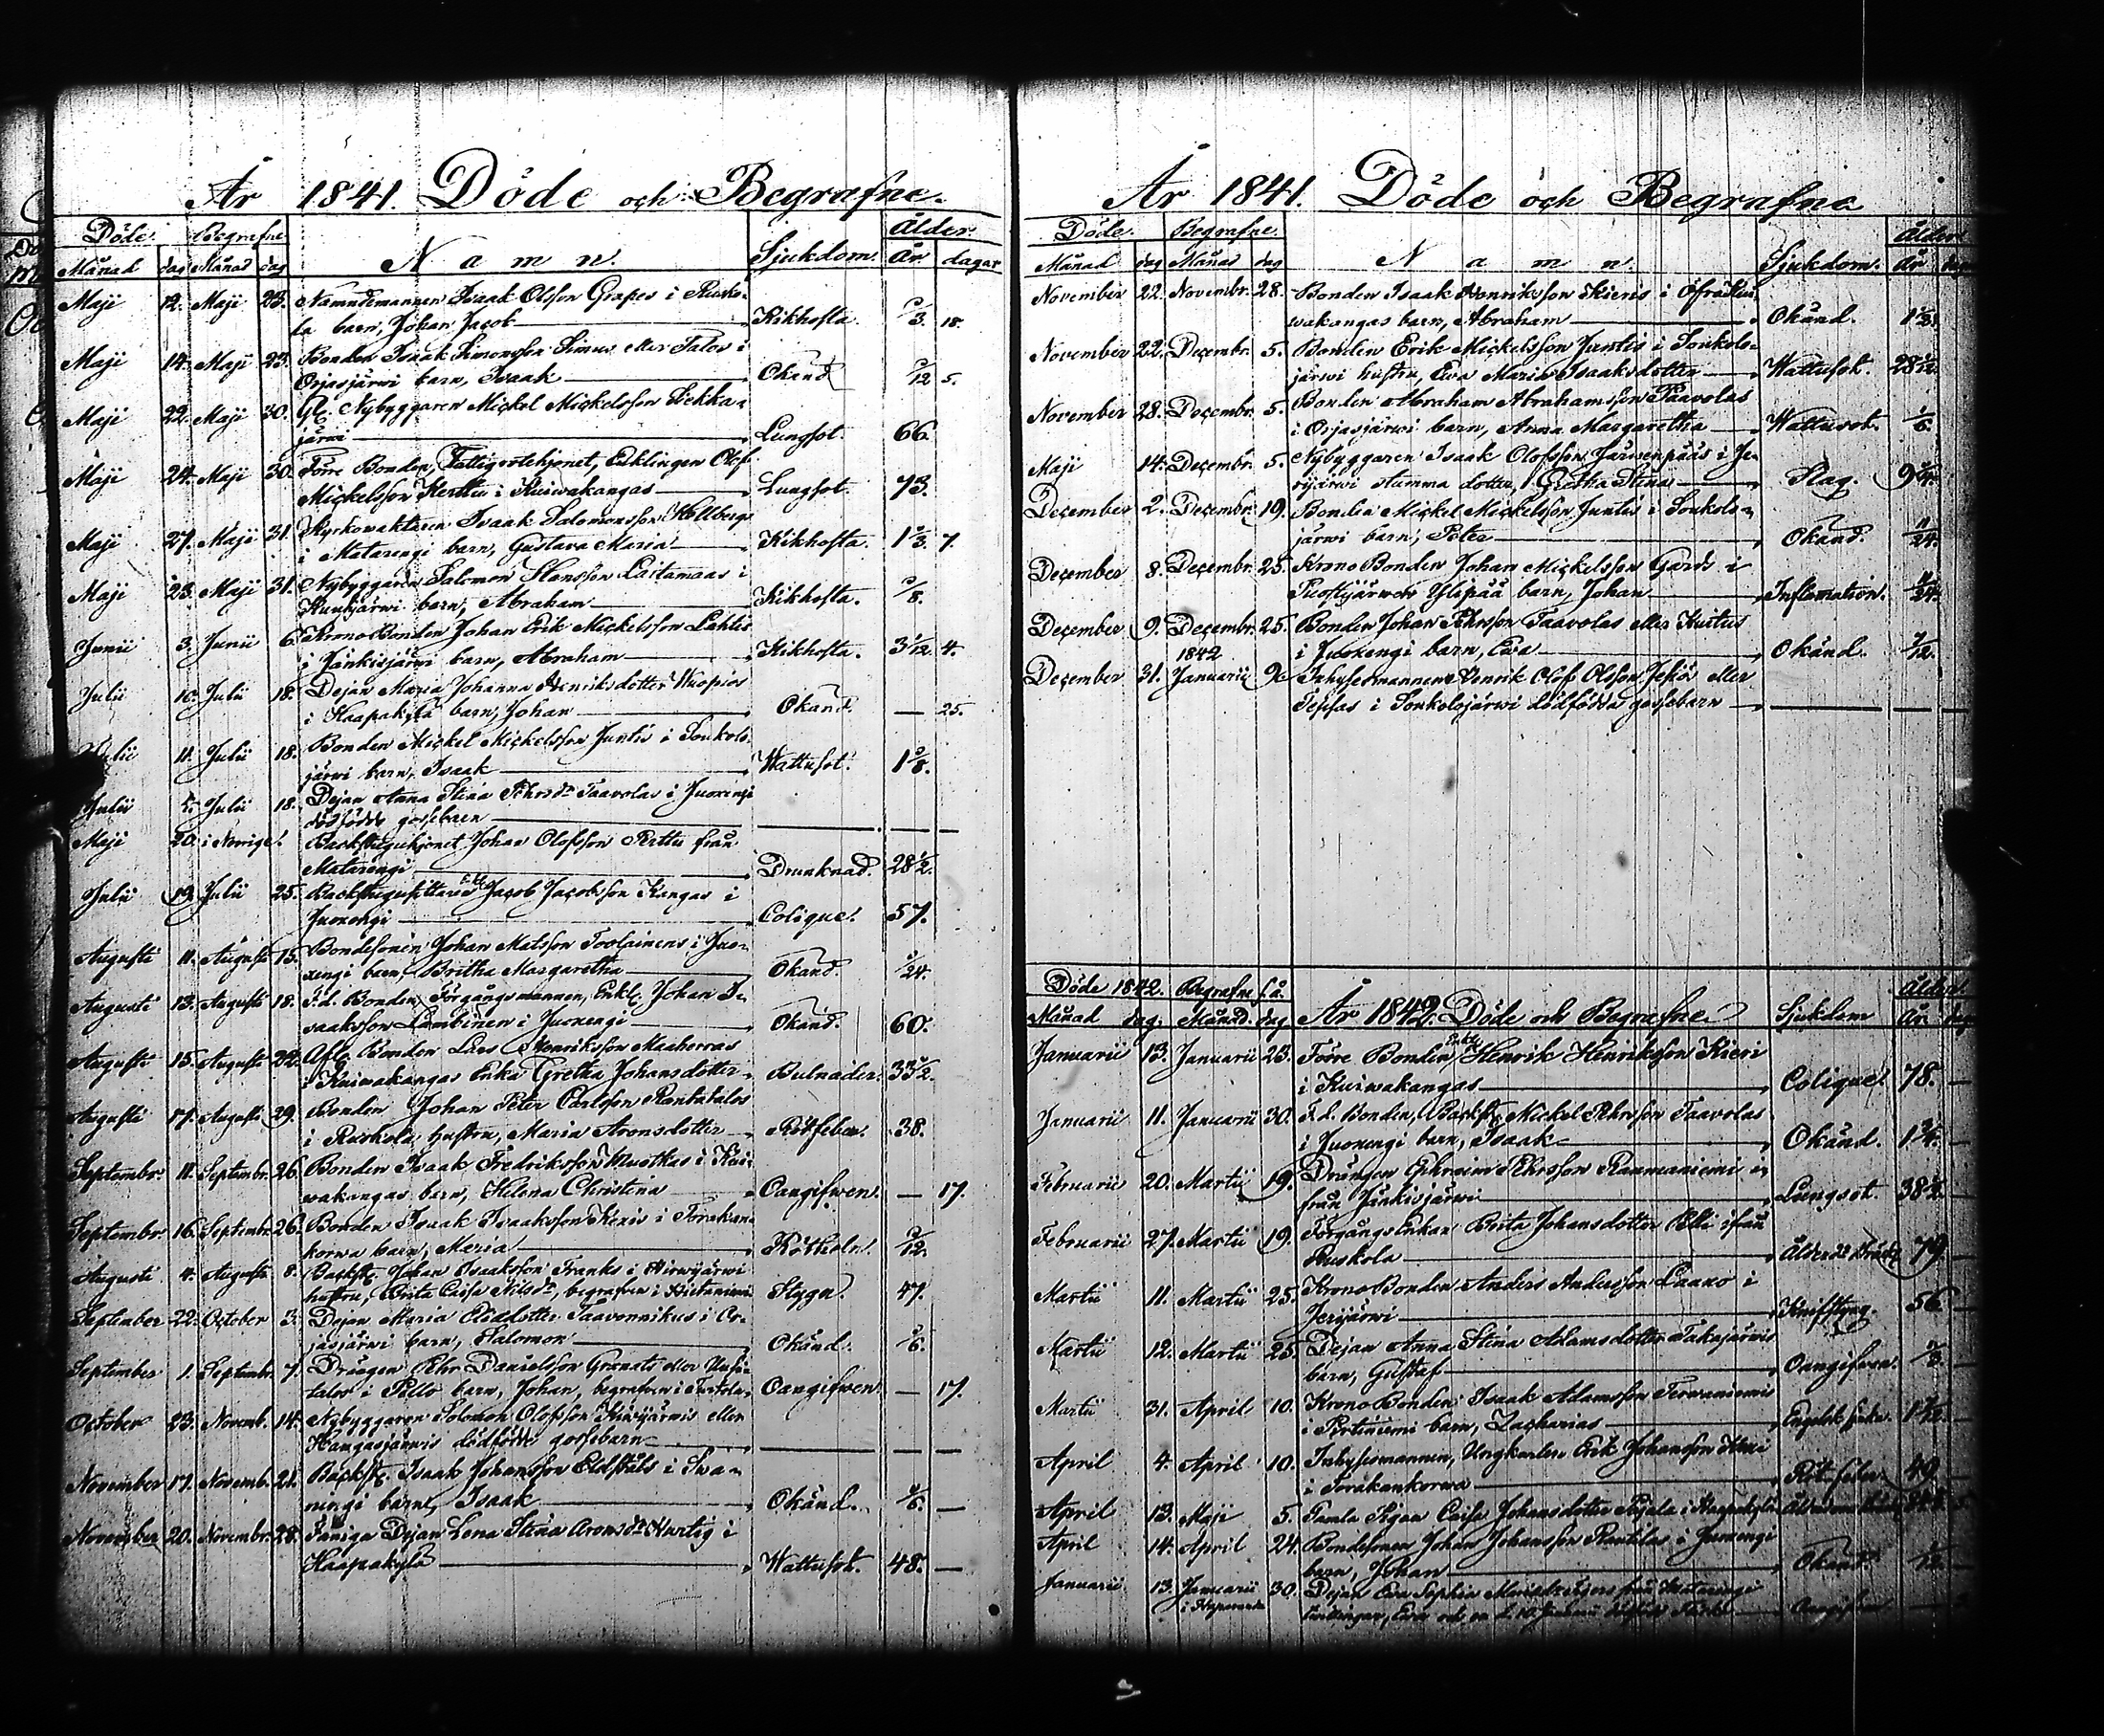 År 1841. Döde och Begrafne.
Döde. Begrafne Namn. Sjukdom. Ålder.
Månad dag Månad dag År dagar
Maji 12. Maji 23. Nämndemannen Isaak Olofson Grapes i Rusko-
la barn, Johan Jacob Kikhosta. 2/3. 18.
Maji 14. Maji 23. Bonden Isaak Simonsson Simus eller Talos i
Orjasjärwi barn, Isaak Okänd 12 5.
Maji 22. Maji 30. Nybyggaren Mickel Mickelsson
järwi Lungsot. 66.
Maji 24. Maji 30. Förre Bonden, Fattighjonet, Enklingen Olof
Mickelsson Herttu i Kuiwakangas Lungsot. 73.
Maji 27. Maji 31. Kyrkowaktaren Isaak Salomonsson Kollbergs
i Matarengi barn, Gustava Maria Kikhosta. 1 2/3. 7.
Maji 23. Maji 31. Nybyggaren Salomon Hansson Laitamaas i
barn, Abraham Kikhosta. /8.
Junii 3. Junii 6. KronoBonden Johan Erik Mickelsson Lahtis
i Jänkisjärwi barn, Abraham Kikhosta. 3 1/12 4.
Julii 10. Julii 18. Pejan Maria Johanna Henriksdotter Kuopios
i Haapakylä barn, Johan Okänd. — 25.
Julii 11. Julii 18. Bonden Mickel Mickelsson Juntis i Soukolo-
järwi barn, Isaak Wattusot. 1 /8.
Julii 5. Julii 18. Pejan Anna Stina Pehrsdr Taavolas i Juoxengi
dödfödde gossebarn — — —
Maji 20. i Norrige. Backstuguhjonet Johan Olofsson Perttu från
Matarengi Drunknad. 28 1/2.
Julii 19. Julii 25. Backstugusittaren Jacob Jacobsson Kangas i
Juoxengi Colique. 57.
Augusti 11. Augusti 15. Bondesonen Johan Matsson Toolainens i Juo-
xengi barn, Britha Margaretha Okänd. /24.
Augusti 13. Augusti 18. F.d. Bonden, Förgångsmannen, Enkl. Johan I-
saaksson Lambinen i Juoxengi Okänd. 60.
Augusti 15. Augusti 22. Afl. Bonden Lars Henriksson
i Kuiwakangas Enka Gretha Johansdotter Bulnader. 33 1/2.
Augusti 17. Augusti 29. Bonden Johan Peter Carlsson Rantatalos
i Ruskola, hustru, Maria Aronsdotter Rötfeber. 38.
Septembr. 11. Septembr. 26. Bonden Isaak Fredriksson Muotkas i Kui-
wakangas barn, Helena Christina Oangifwen. — 17.
Septembr. 16. Septembr. 26. Bonden Isaak Isaaksson Keris i Torakan-
korwa barn, Maria /12.
Augusti 4. Augusti 8. Backst. Johan Isaaksson Franks i Hirwijärwi
hustru, Brita Caisa Nilsdr, begrafven i Hietaniemi Stygn 47.
September 22. October 3. Pejan Maria Eliædotter Taavonnikus i Or-
jasjärwi barn, Salomon Okänd. /6.
September 1. Septembr. 7. Drängen Pehr Danielsson Granats eller
talos i Pello barn, Johan, begrafwen i Turtola Oangifwen — 17.
October 23. Novemb. 14. Nybyggaren Solomon Olofsson eller
Kangasjärwis dödfödde gossebarn — — —
November 17. Novemb. 21. Backst. Isaak Johansson Eldståls i Swa-
ningi barn, Isaak Okänd. /6. —
November 20. Novembr. 28. Pejan Lena Stina Aronsdr Hurtig i
Haapakylä Wattusot. 48. —
År 1841. Döde och Begrafne
Döde. Begrafne. Namn. Sjukdom. Ålder.
Månad dag Månad dag År
November 22. Novembr. 28. Bonden Isaak Henriksson Kieris i Öfra Kui-
wakangas barn, Abraham Okänd. 1
November 22. Decembr. 5. Bonden Erik Mickelsson Juntis i Soukolo-
järwi hustru, Ewa Maria Isaaksdotter Wattusot. 28
November 28. Decembr. 5. Bonden Abraham Abrahamsson Taavolas
i Orjasjärwi barn, Anna Margaretha Wattusot. 1/6.
Maji 14. Decembr. 5. Nybyggaren Isaak Olofsson Järwenpääs i Je-
rijärwi stumma dotter, Gretha Stina Slag. 9
December 2. Decembr. 19. Bonden Mickel Mickelsson Juntis i Soukolo-
järwi barn, Peter Okänd. 11/24.
December 8. Decembr. 25. Krono Bonden Johan Mickelsson Gards i
Ylipää barn, Johan Inflamation. /24.
December 9. Decembr. 25. Bonden Johan Pehrsson Taavolas eller Kustus
i Juoxengi barn, Ewa Okänd. /12.
1842
December 31. Januarii 9. Inhysesmannen Henrik Olof Olsson Jesiös eller
Teppas i Soukolojärwi dödfödda gossebarn — — —
Döde 1842. Begrafne s.å. År 1842. Döde och Begrafne. Sjukdom Ålder.
Månad dag. Månad. dag År
Januarii 13. Januarii 23. Förre Bonden Enkl. Henrik Henriksson Kieri
i Kuiwakangas Colique. 78. —
Januarii 11. Januarii 30. F.d. Bonden, Backst. Mickel Pehrsson Taavolas
i Juoxengi barn, Isaak Okänd. 1 3/4. —
Februarii 20. Martii 19. Drängen Ephraim Pehrsson Raumaniemi
från Jänkisjärwi Lungsot. 38
Februarii 27. Martii 19. Förgångs Enkan Brita Johansdotter Pelli ifrån
Ruskola Ålderdr 79.
Martii 11. Martii 25. Krono Bonden Anders Andersson Laano i
Jerijärwi 56.
Martii 12. Martii 25. Pejan Anna Stina Adamsdotter
barn, Gustaf Oangifwen.
Martii 31. April 10. Krono Bonden Isaak Adamsson Terwaniemis
i Pirtiniemi barn, Zacharias Engelsk sjuka. 1
April 4. April 10. Inhysesmannen, Ungkarlen Erik Johansson
i Torakankorwa Rötfeber 49.
April 13. Maji 5. Gamla Pigan Caisa Johansdotter i Haapakylä
April 14. April 24. Bondesonen Johan Johansson Rantilas i Juoxengi
barn, Johan Okänd
Januarii 13. Januarii 30. Pejan Ewa Sophia från Matarengi
i Haparanda